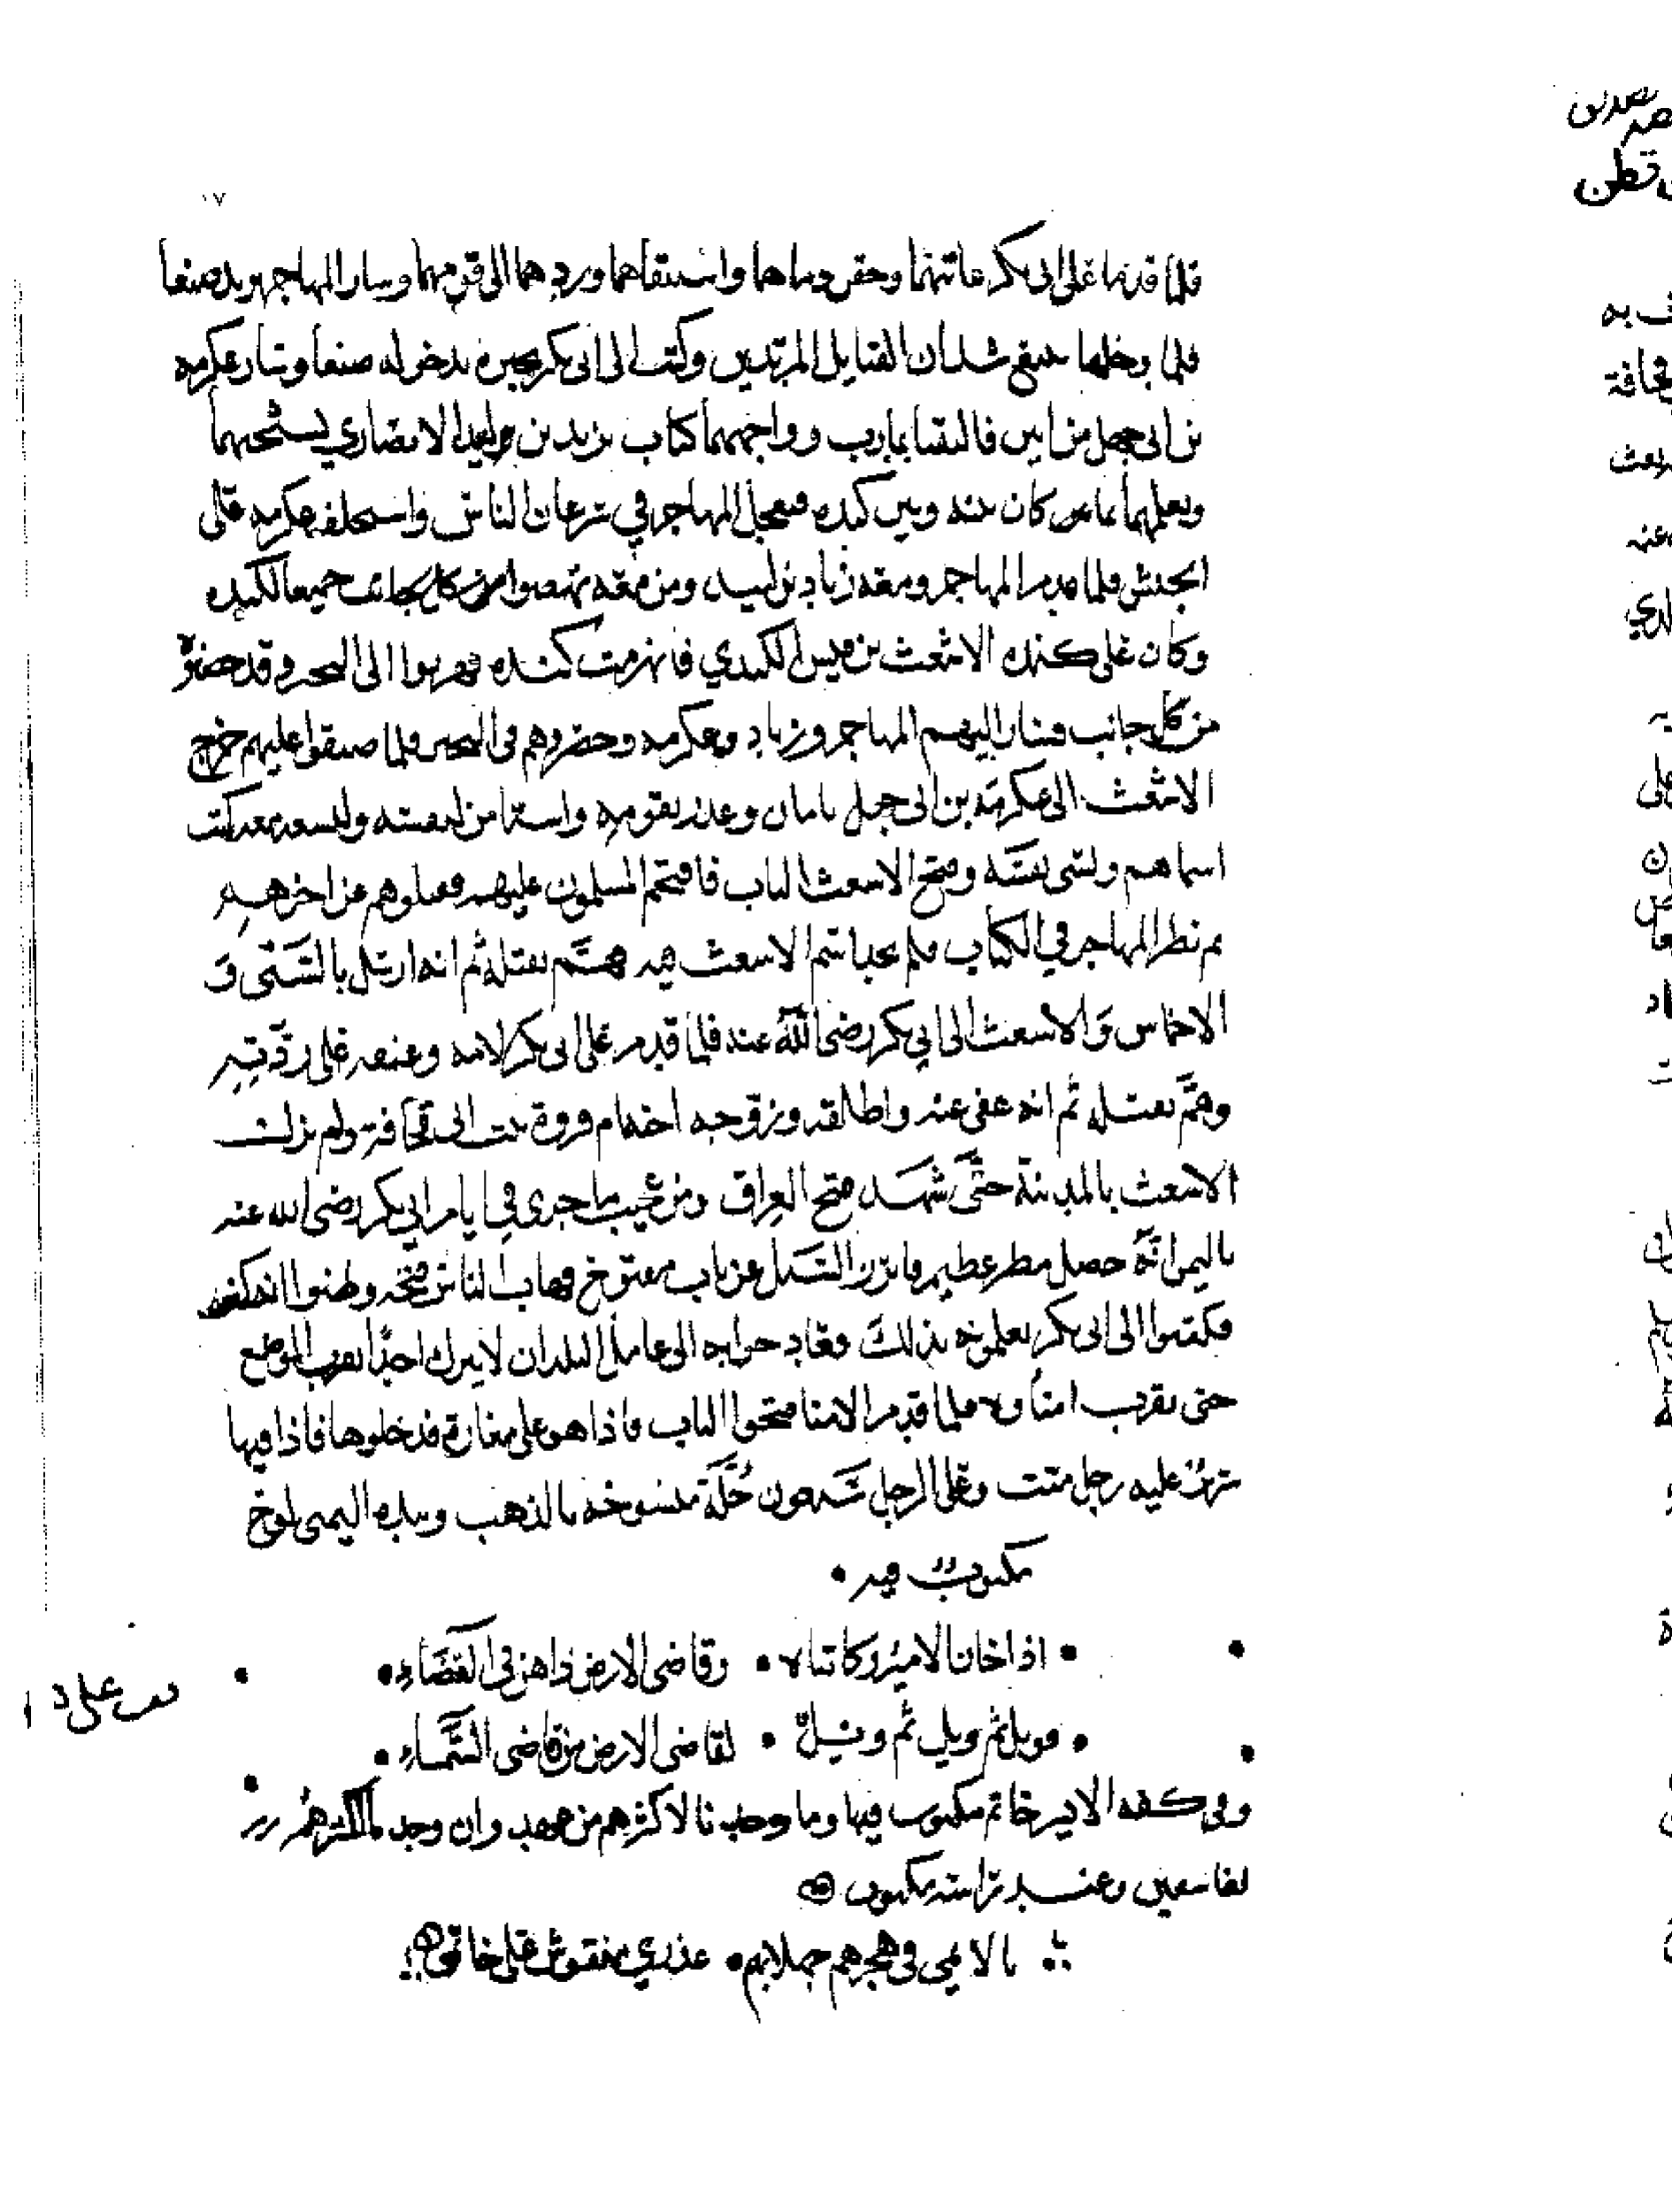 ١٧
فلما قدما على ابى بكر عاتبهما وحقن دماهما واستبقاهما وردهما الى قومهما وسار المهاجر يريد صنعا
فلما دخلها تتبع شذان القبايل المرتدين وكتب الى ابى بكر يخبره بدخوله صنعا وسار عكرمه
بن ابى جهل من ابين فالتقيا بمارب وواجههما كتاب زياد بن لبيد الانصاري يستحثهما
ويعلمهما بما كان بينه وبين كنده فتعجل المهاجر في سرعان الناس واستخلف عكرمه على
الجيش فلما قدم المهاجر ومعه زياد بن لبيد ومن معه نهضوا من كل جانب جميعا لكنده
وكان على كنده الاشعث بن قيس الكندي فانهزمت كنده فهربوا الى النجير وقد حصنوه
من كل جانب فسار اليهم المهاجر وزياد وعكرمه وحصروهم فى النجير فلما ضيقوا عليهم خرج
الاشعث الى عكرمة بن ابى جهل بامان وغدر بقومه واستامن لنفسه ولتسعه معه كتب
اسماهم ونسى نفسه وفتح الاشعث الباب فاقتحم المسلمون عليهم فقتلوهم عن اخرهم
ثم نظر المهاجر في الكتاب فلم يجد اسم الاشعث فيه فهم بقتله ثم انه ارسل بالسبى و
الاخماس والاشعث الى ابي بكر رضى الله عنه فلما قدم على ابى بكر لامه وعنفه على ردته
وهم بقتله ثم انه عفى عنه واطلقه وزوجه اخته ام فروة بنت ابى قحافة ولم يزل
الاشعث بالمدينة حتى شهد فتح العراق ومن عجيب ما جرى في ايام ابي بكر رضى الله عنه
باليمن انه حصل مطر عظيم فابرز السيل عن باب مفتوح فهاب الناس فتحه وظنوا انه كنز
فكتبوا الى ابى بكر يعلمونه بذلك فعاد جوابه الى عامل البلدان لا يترك احدا يقرب الموضع
حتى يقرب امناوه فلما قدم الامنا فتحوا الباب فاذا هو على مغارة فدخلوها فاذا فيها
سرير عليه رجل ميت وعلى الرجل سبعون حلة منسوجه بالذهب وبيده اليمنى لوح
مكتوب فيه •
• اذا خان الامير وكاتباه • وقاضى الارض داهن فى القضاء •
• فويل ثم ويل ثم ويل • لقاضى الارض من قاضى السماء •
وفى كفه الايسر خاتم مكتوب فيها وما وجدنا لاكثرهم من عهد وان وجدنا اكثرهم
لفاسقين وعند راسه مكتوب
يا لايمى فى هجرهم جهلا بهم • عذري منقوش على خاتمى